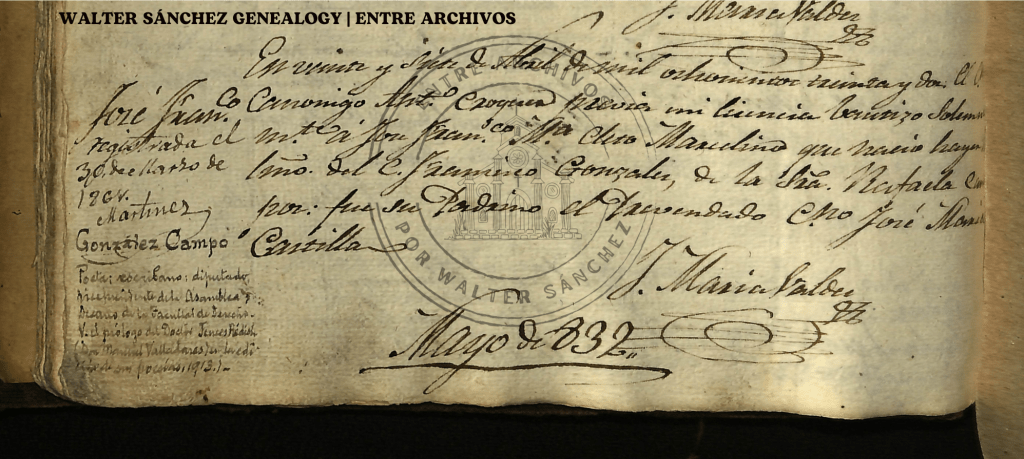 WALTER SÁNCHEZ GENEALOGY | ENTRE ARCHIVOS
J. Maria Valdez
En veinte y siete de Abril de mil ochocientos treinta y dos. El C.
Canonigo Ant.º Croquer previa mi licencia bautizo Solem
m.te á José Fran.co M.a Cleto Marcelino que nacio hayer
del C. Francisco Gonzalez, de la Sra. Rafaela Cam
por: fue su Padrino el Prevendado C.no José Mari
Castilla
José Fran.co
registrada el
30 de Marzo de
1864.
Martinez
González Campo
Poeta; escribano; diputado,
Vicepresidente de la Asamblea y
Decano de la Facultad de Derecho.
V. el prólogo del Doctor
Manuel Valladares) en la edi
poesías, 1913.)
J. Maria Valdez
Mayo de 832
ENTRE ARCHIVOS
POR WALTER SÁNCHEZ